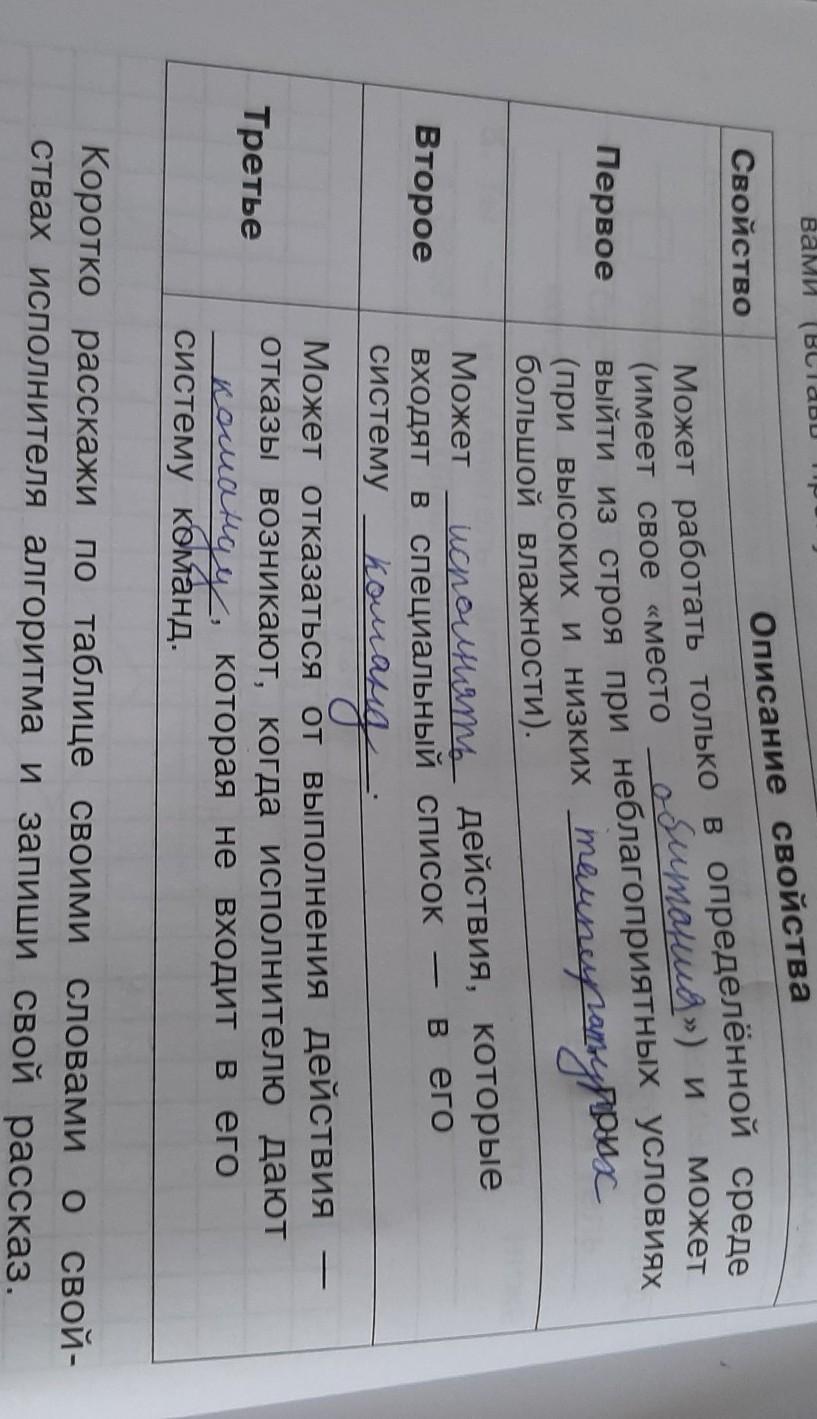 вами (вставь
Свойство Описание свойства
Первое
Может работать только в определённой среде
(имеет свое «место обитания») и может
выйти из строя при неблагоприятных условиях
(при высоких и низких температурах, при
большой влажности).
Второе
Может исполнять действия, которые
входят в специальный список — в его
систему команд.
Третье
Может отказаться от выполнения действия —
отказы возникают, когда исполнителю дают
команду, которая не входит в его
систему команд.
Коротко расскажи по таблице своими словами о свой-
ствах исполнителя алгоритма и запиши свой рассказ.